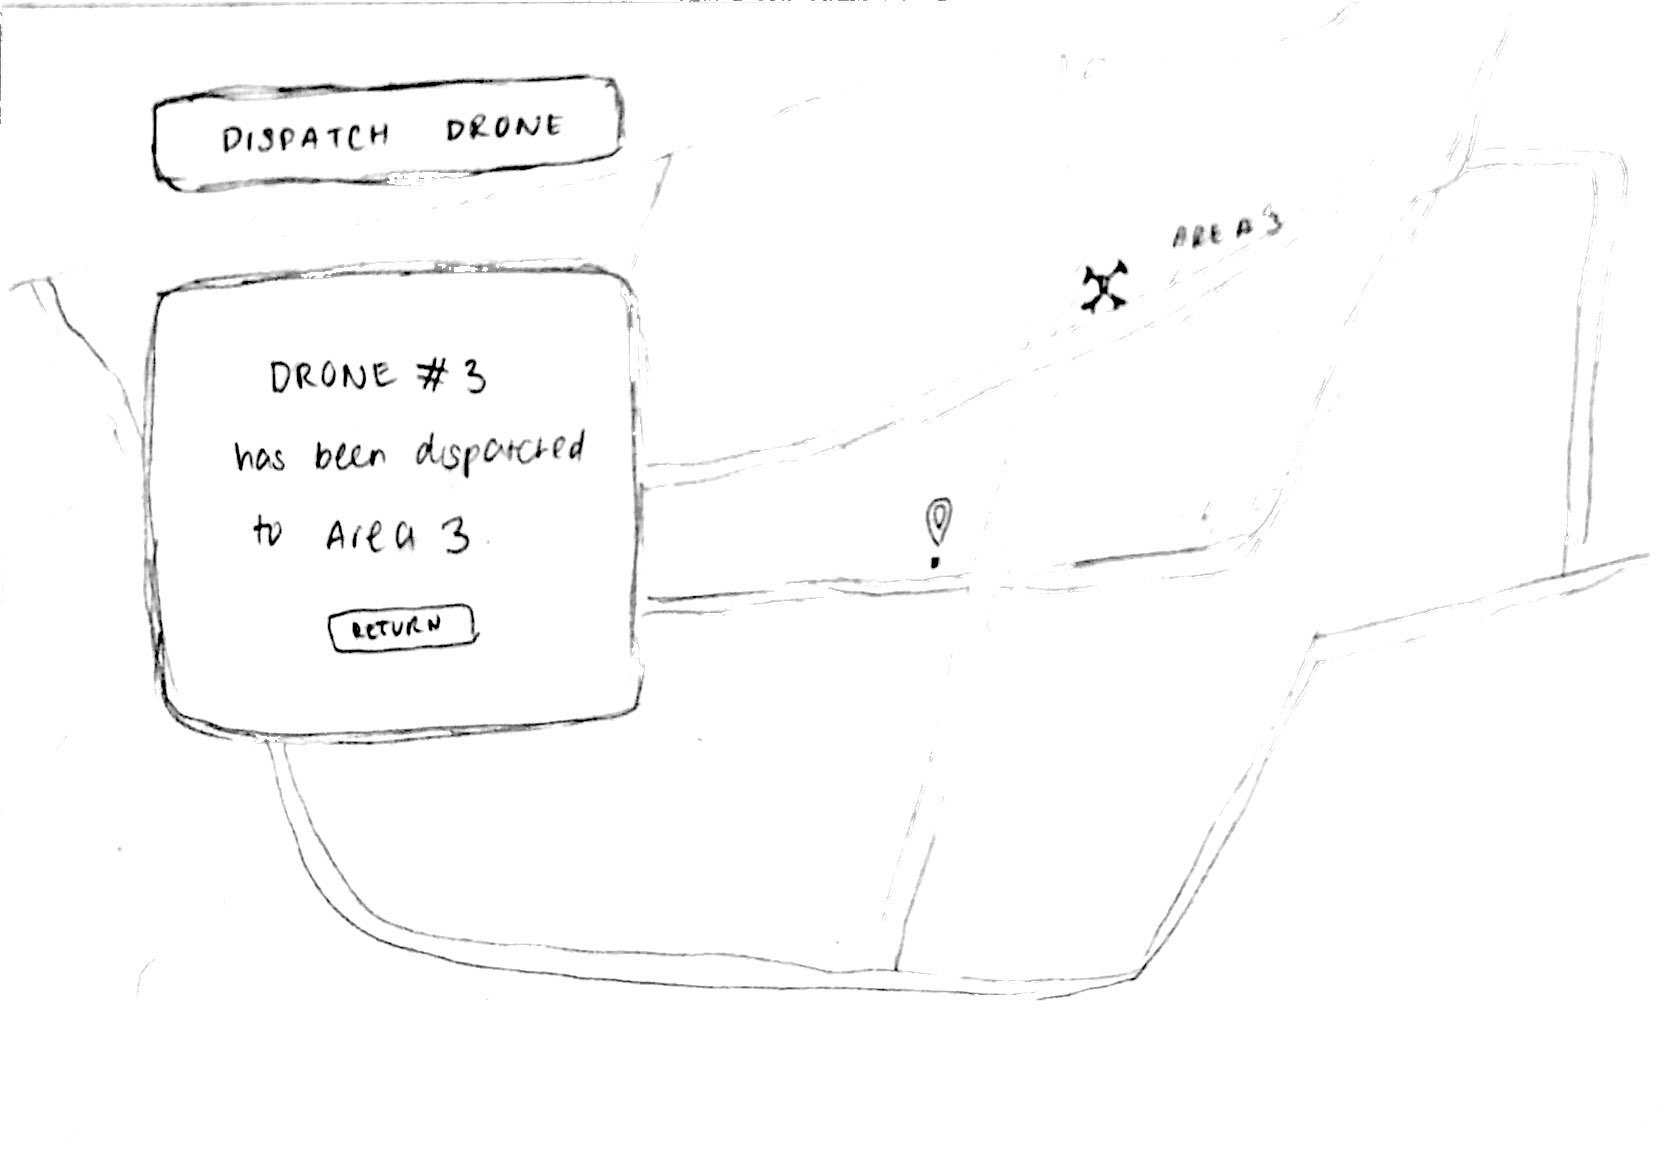 DISPATCH DRONE
AREA 3
DRONE # 3
has been dispatched
to Area 3.
RETURN